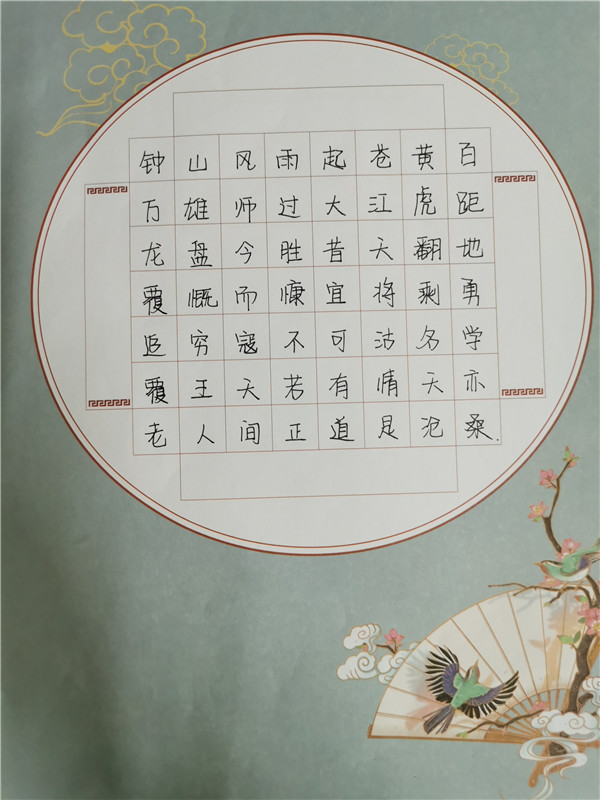 钟山风雨起苍黄百
万雄师过大江虎距
龙盘今胜昔天翻地
覆慨而慷宜将剩勇
追穷寇不可沽名学
覆王天若有情天亦
老人间正道是沧桑.